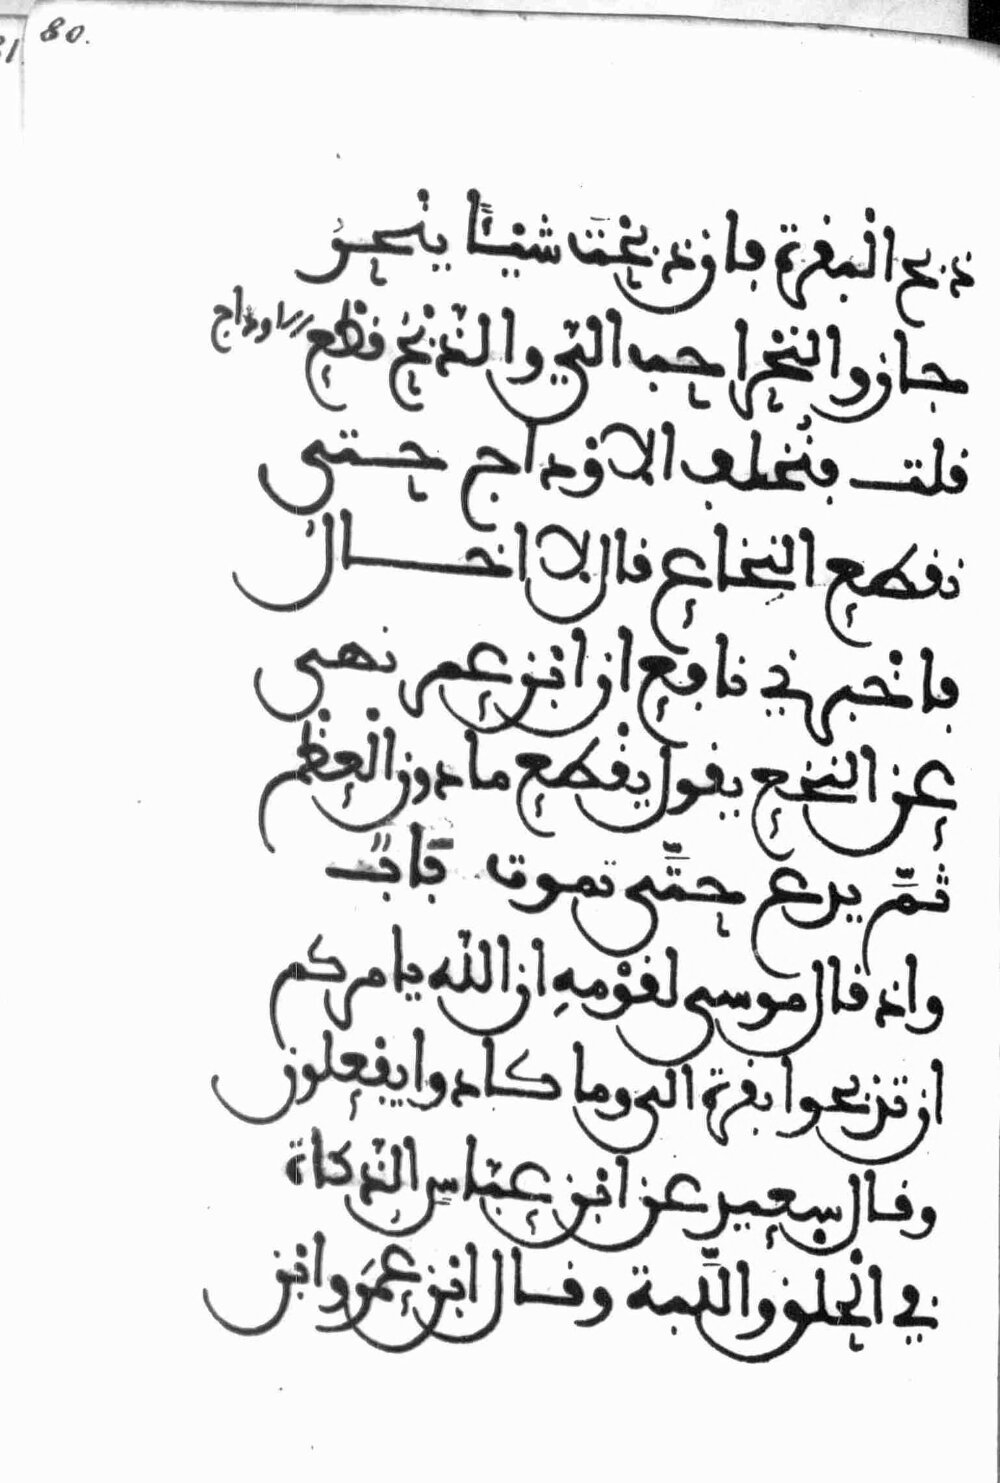 80.
ذبح البقرة فان ذبحت شيئا ينحر
جاز والنحر احب الي والذبح قطع الاوداج
قلت فنخلف الاوداج حتى
نقطع النخاع قال لا اخال
فاخبرني نافع ان ابن عمر نهى
عن النخع يقول يقطع ما دون العظم
ثم يدع حتى تموت باب
واذ قال موسى لقومه ان الله يامركم
ان تذبحوا بقرة الى وما كادوا يفعلون
وقال سعيد عن ابن عباس الذكاة
في الحلق واللبة وقال ابن عمر وابن